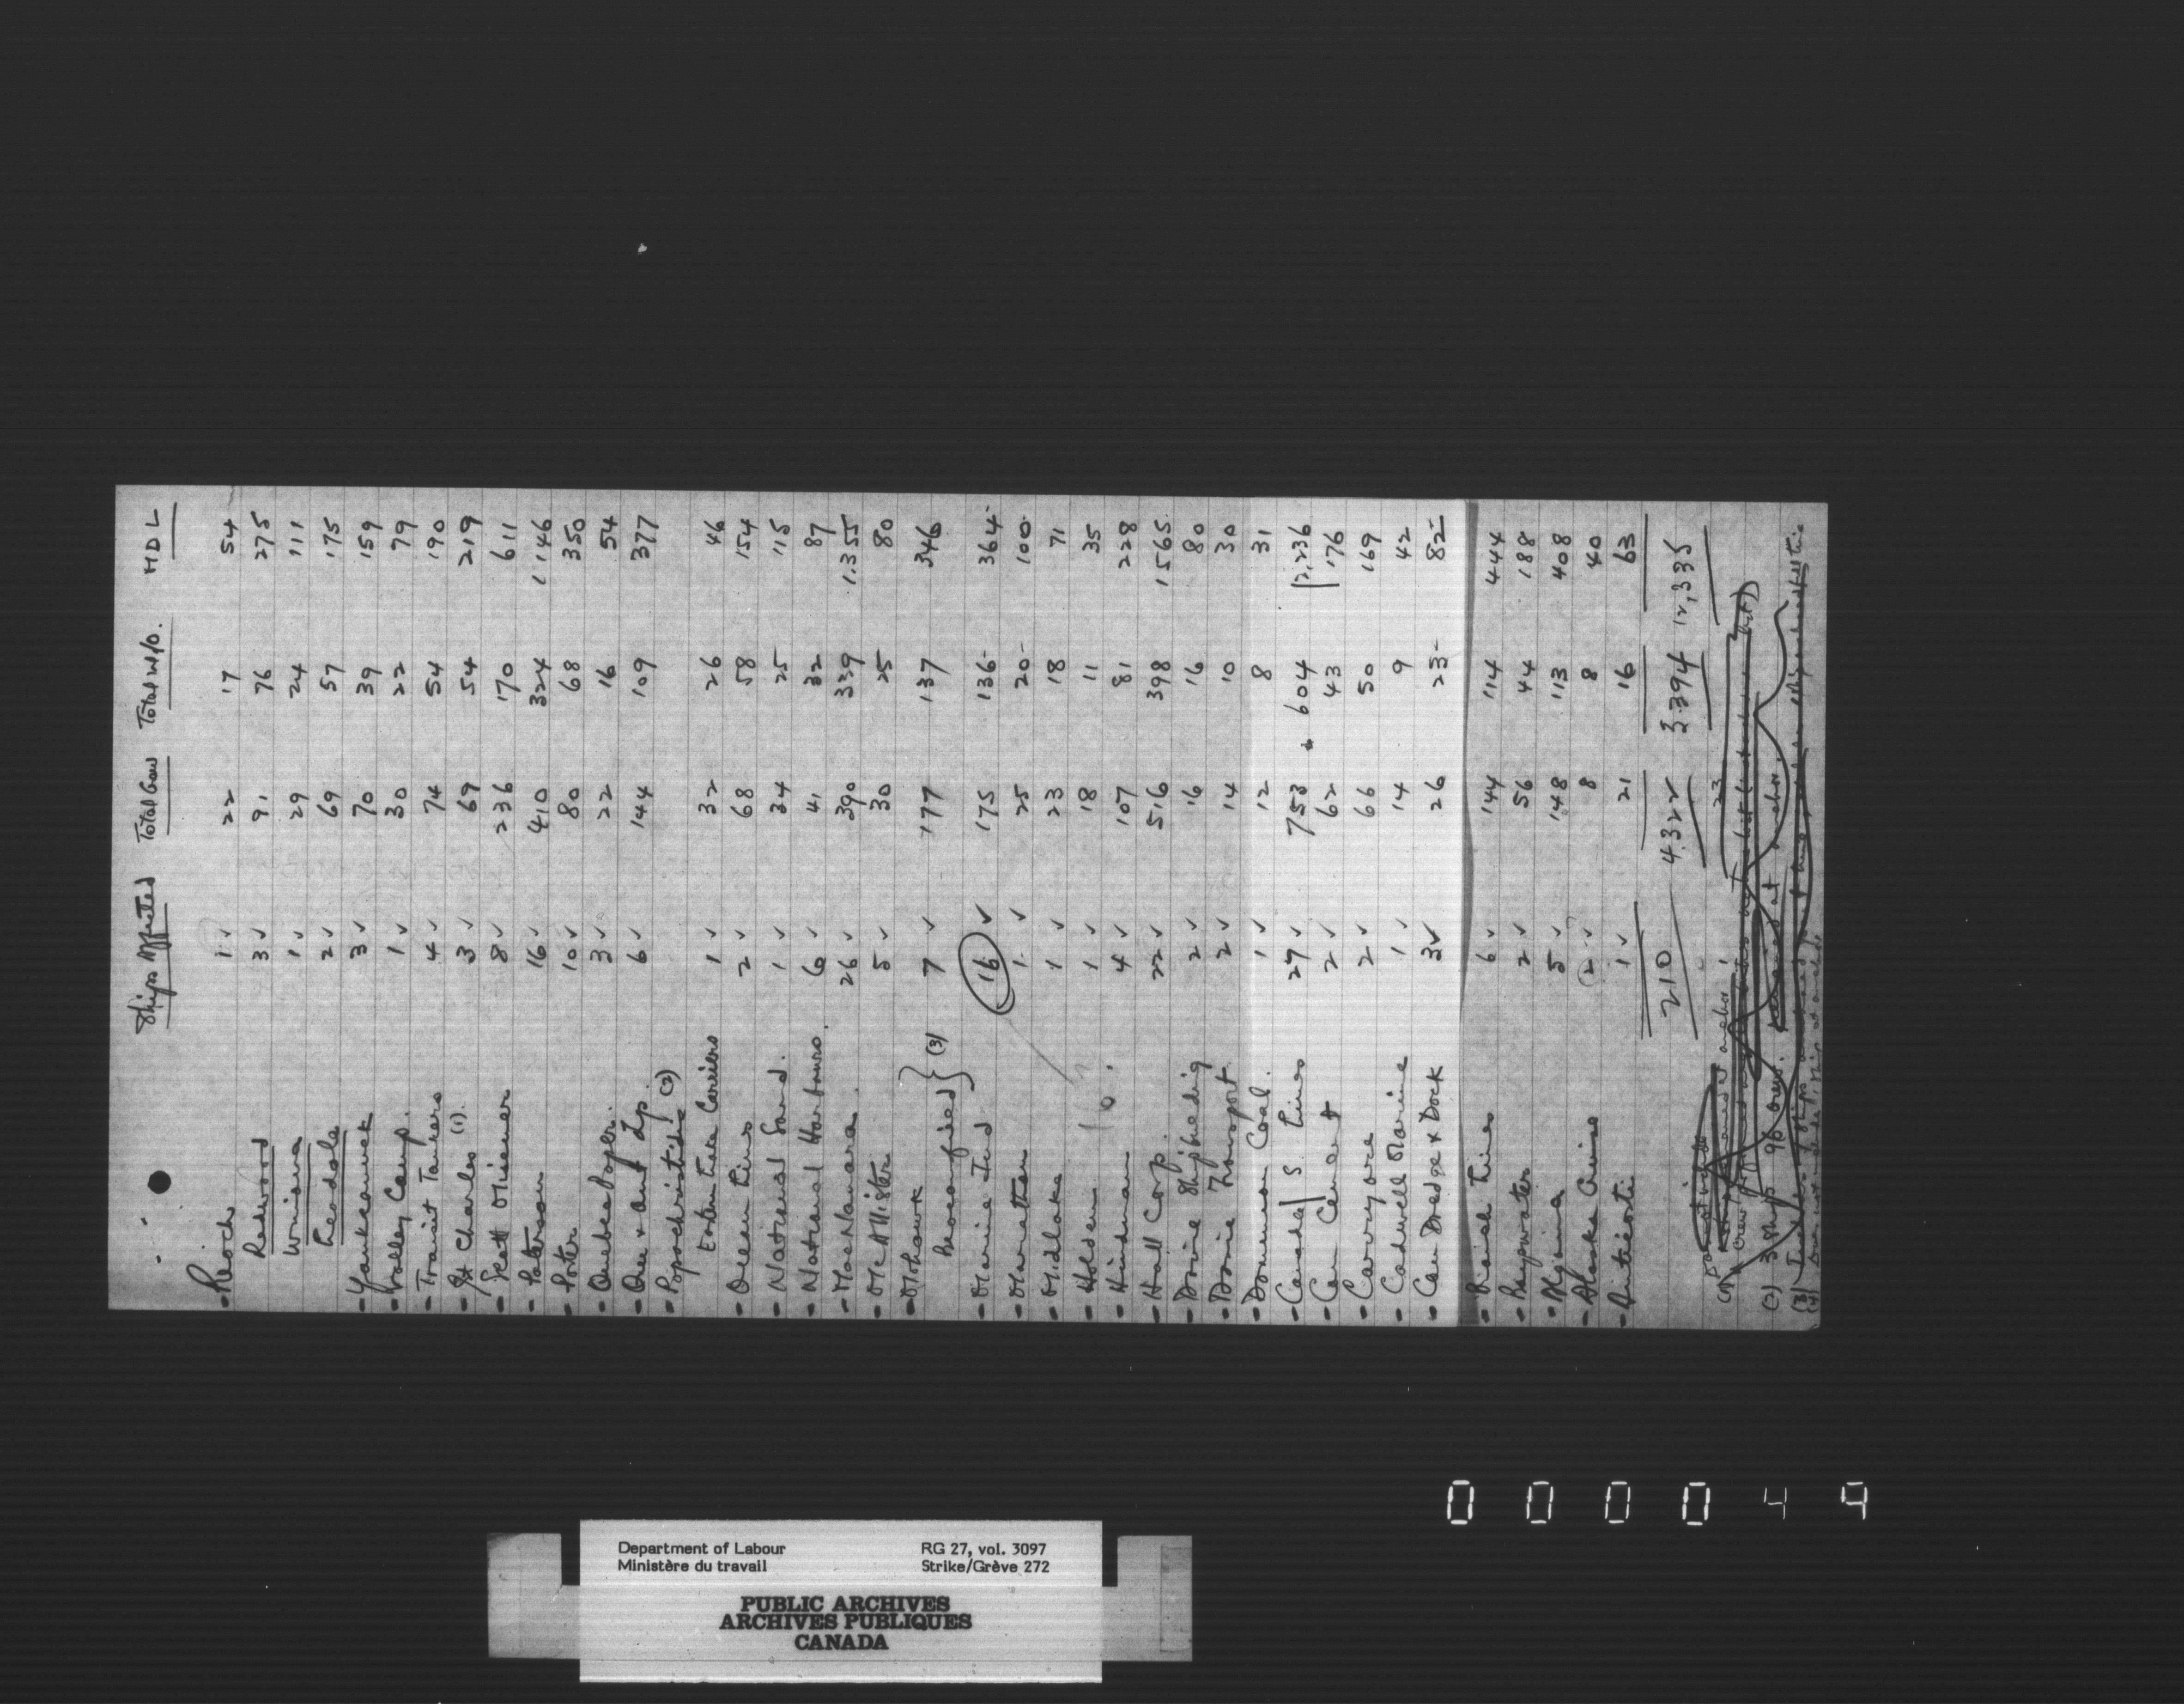 Ships Affected Total Crew Total w/o. M D L
- Reoch 1 ✓ 22 17 54
Redwood 3 ✓ 91 76 275
Woniana 1 ✓ 29 24 111
Leadale 2 ✓ 69 57 175
- Yankcanuck 3 ✓ 70 39 159
- Wolley Camp. 1 ✓ 30 22 79
- Transit Tankers 4 ✓ 74 54 190
- St Charles (1). 3 ✓ 69 54 219
- Scott Misener 8 ✓ 236 170 611
- Paterson 16 ✓ 410 324 1146
- Porter 10 ✓ 80 68 350
- Quebec Paper. 3 ✓ 22 16 54
- Que & Ont Tp. 6 ✓ 144 109 377
- Papachristidis (2)
Eastern Lake Carriers 1 ✓ 32 26 46
- Ocean Lines 2 ✓ 68 58 154
- National Sand. 1 ✓ 34 25 115
- National Harbours. 6 ✓ 41 32 87
- MacNamara. 26 ✓ 390 329 1,355
- McAllister 5 ✓ 30 25 80
- Mohawk
Beaconfield } (3) 7 ✓ 177 137 346
- Marine Ind 16 ✓ 175 136 364
- Marathon 1 ✓ 25 20 100
- Midlake 1 ✓ 23 18 71
- Holden 16. 1 ✓ 18 11 35
- Hindman 4 ✓ 107 81 228
- Hall Corp. 22 ✓ 516 398 1565
- Davie Shipbuilding 2 ✓ 16 16 80
- Davie Transport. 2 ✓ 14 10 30
- Dominion Coal. 1 ✓ 12 8 31
- Canada S. Lines 27 ✓ 753 604 2,236
- Can Cement 2 ✓ 62 43 176
- Carryore 2 ✓ 66 50 169
- Cadwell Marine 1 ✓ 14 9 42
- Can Dredge & Dock 3 ✓ 26 23 82
- Branch Lines 6 ✓ 144 114 444
- Bayswater 2 ✓ 56 44 188
- Algoma 5 ✓ 148 113 408
- Alaska Cruise (2 ✓ 8 8 40
- Anticosti 1 ✓ 21 16 63
210 4322 3394 12,335
23
(1)
(2) 3 ships 96 crew. at anchor.
(3)
(4)
0 0 0 0 4 9
Department of Labour RG 27, vol. 3097
Ministère du travail Strike/Grève 272
PUBLIC ARCHIVES
ARCHIVES PUBLIQUES
CANADA